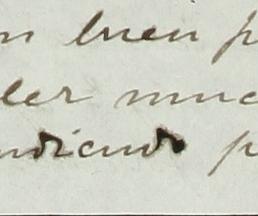 n buen p
der muc
ndiendo p